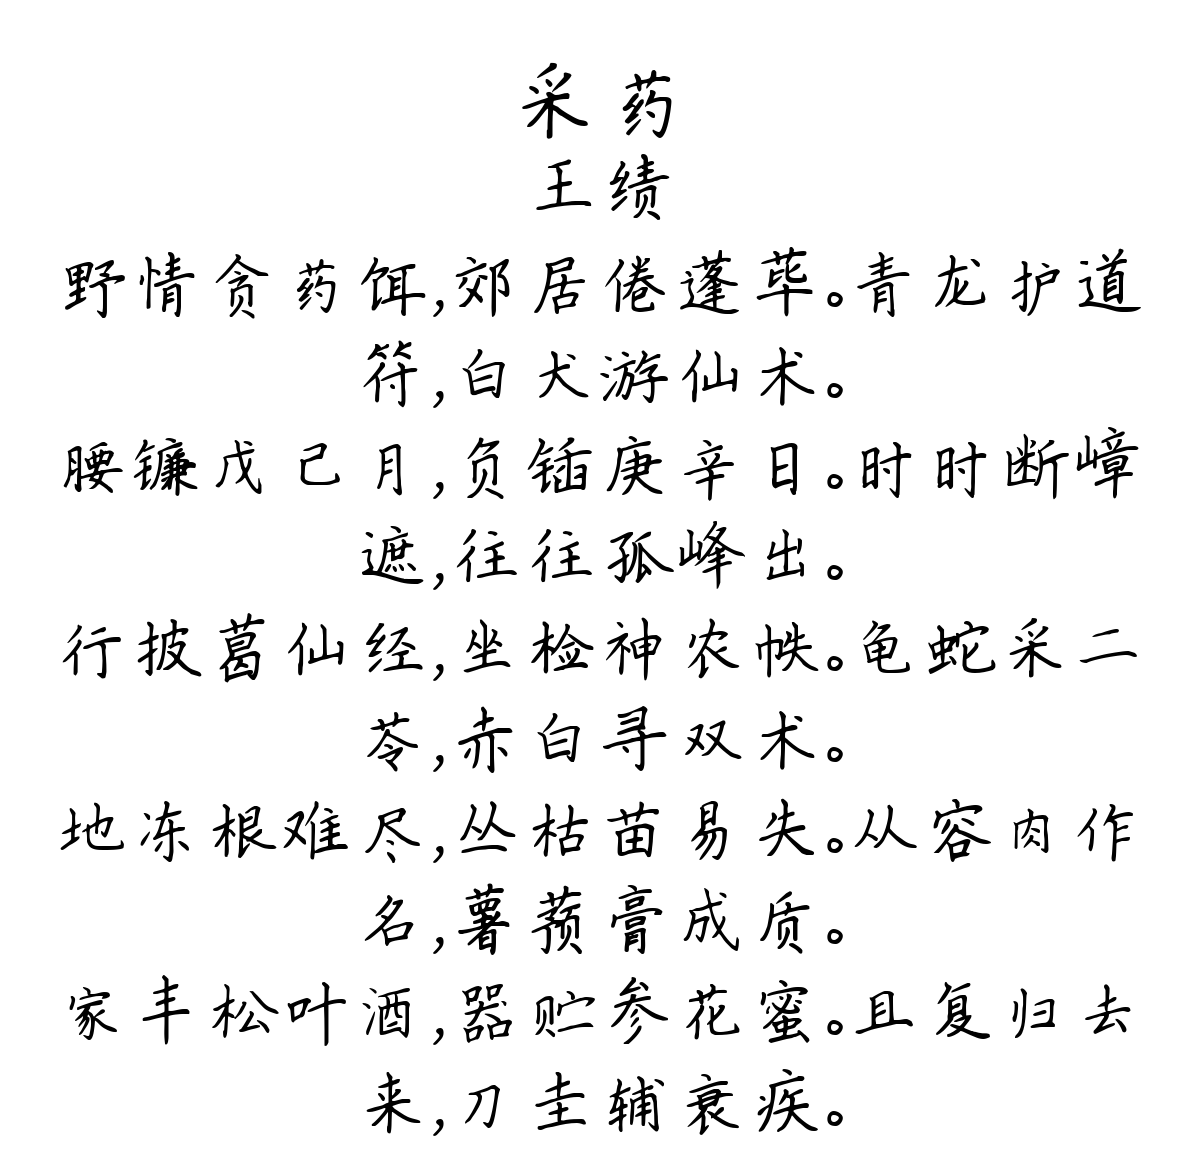 采药
王绩
野情贪药饵,郊居倦蓬荜。青龙护道
符,白犬游仙术。
腰镰戊己月,负锸庚辛日。时时断嶂
遮,往往孤峰出。
行披葛仙经,坐检神农帙。龟蛇采二
苓,赤白寻双术。
地冻根难尽,丛枯苗易失。从容肉作
名,薯蓣膏成质。
家丰松叶酒,器贮参花蜜。且复归去
来,刀圭辅衰疾。